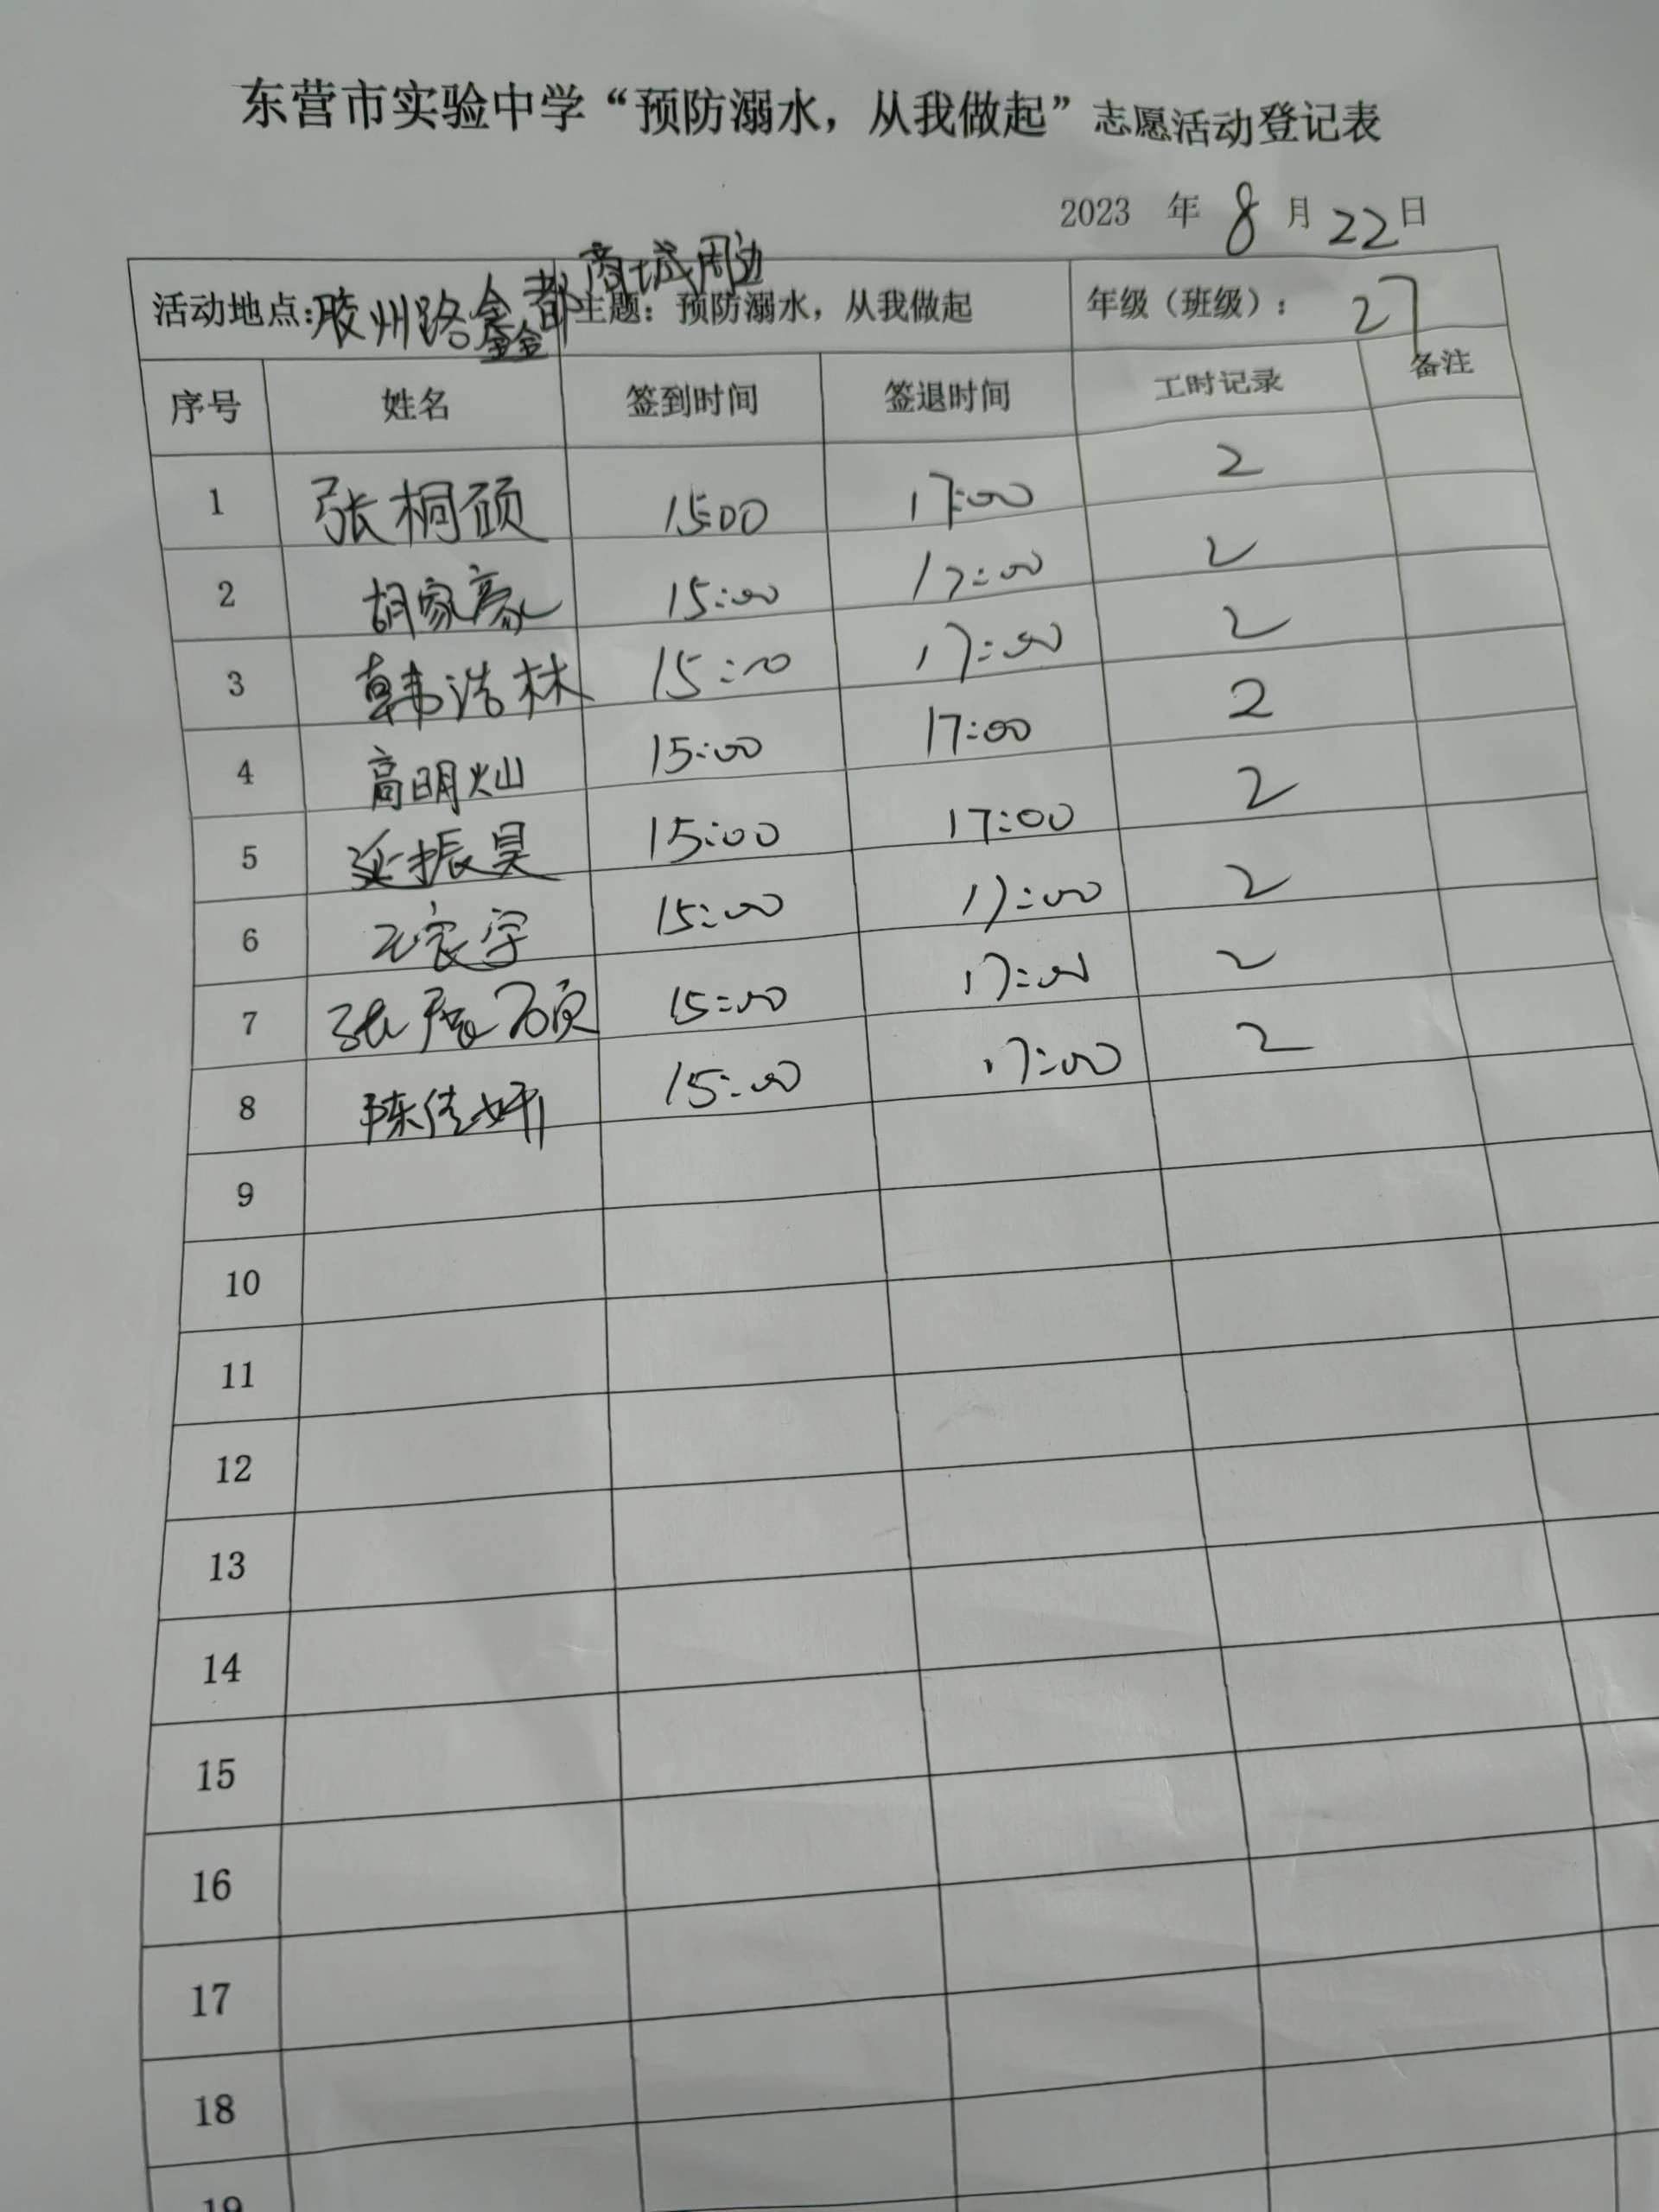 东营市实验中学“预防溺水，从我做起”志愿活动登记表
2023 年 8 月 22 日
活动地点：胶州路鑫都商城周边 主题：预防溺水，从我做起 年级（班级）： 27
序号 姓名 签到时间 签退时间 工时记录 备注
1 张桐硕 15:00 17:00 2
2 胡家豪 15:00 17:00 2
3 韩浩林 15:00 17:00 2
4 高明灿 15:00 17:00 2
5 延振昊 15:00 17:00 2
6 15:00 17:00 2
7 张宸硕 15:00 17:00 2
8 陈佳妍 15:00 17:00 2
9
10
11
12
13
14
15
16
17
18
19